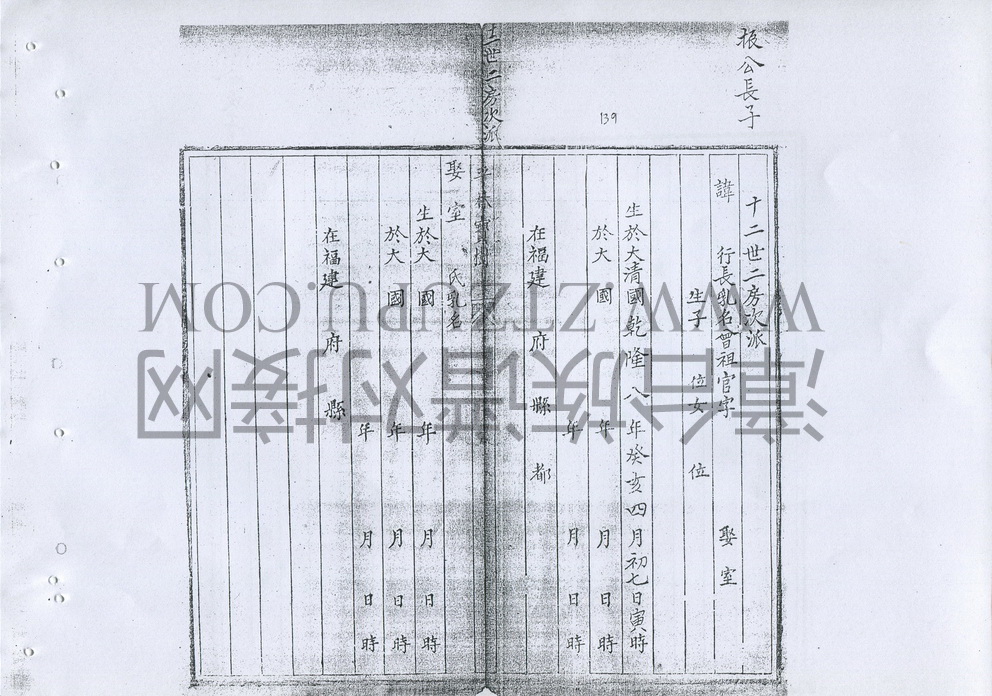 振公長子
139
十二世二房次派
諱 行長乳名曾祖官字 娶室
生子 位女 位
生於大清國乾隆八年癸亥四月初七日寅時
於大 國 年 月 日 時
年 月 日 時
在福建 府 縣 都
十二世二房次派
娶室 氏乳名
生於大 國 年 月 日 時
於大 國 年 月 日 時
年 月 日 時
在福建 府 縣
WWW.ZTZUPU.COM
漳台族谱对接网